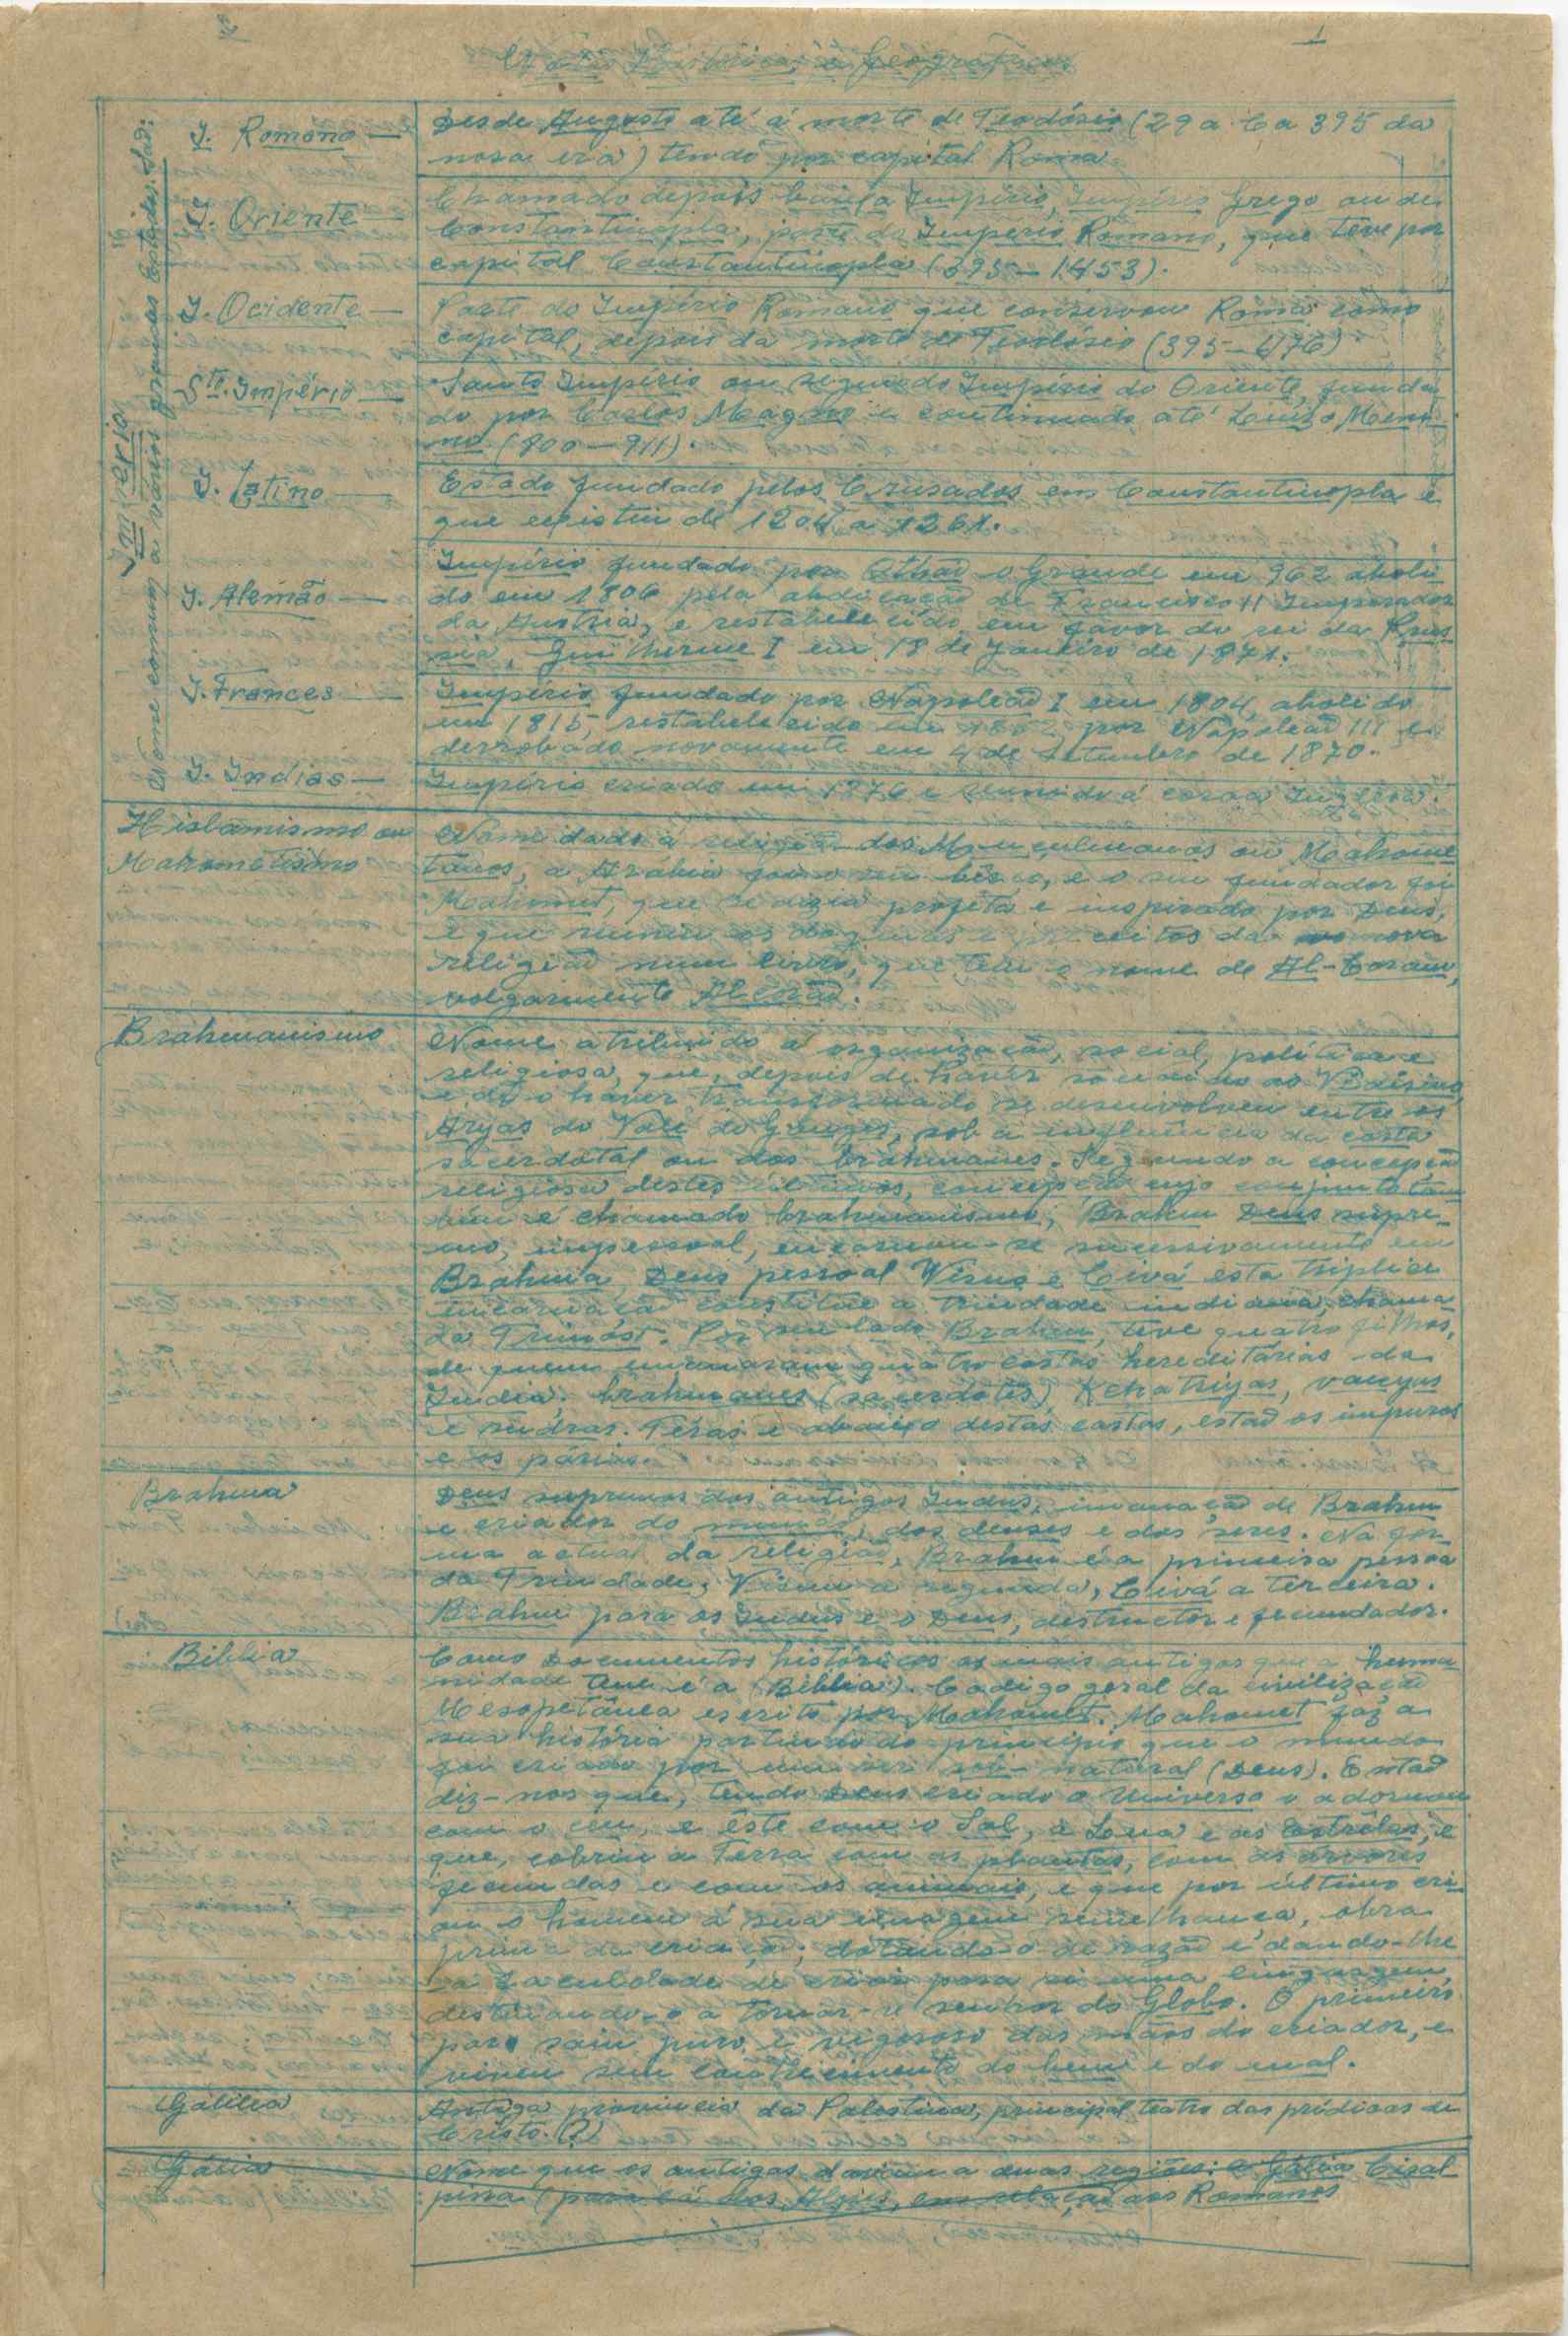 1
Notas Históricas e Geográficas
Império
Nome comum a vários grandes Estados. São:
I. Romano — Desde Augusto até á morte de Teodósio (29 a. C a 395 da
nossa era) tendo por capital Roma.
I. Oriente — Chamado depois Baixo Império, Império Grego ou de
Constantinopla, parte do Império Romano, que teve por
capital Constantinopla (395 — 1453).
I. Ocidente — Parte do Império Romano que conservou Roma como
capital, depois da morte de Teodósio (395 — 476)
Sto. Império — Santo Império ou segundo Império do Oriente, funda-
do por Carlos Magno e continuado até Luís o Meni-
no (800 — 911).
I. Latino — Estado fundado pelos Crusados em Constantinopla e
que existiu de 1204 a 1261.
I. Alemão — Império fundado por Othão o Grande em 962 aboli-
do em 1806 pela abdicação de Francisco II Imperador
da Austria, e restabelecido em favor do rei da Prus-
sia, Guilherme I em 18 de Janeiro de 1871.
I. Frances — Império fundado por Napoleão I em 1804, abolido
em 1815, restabelecido em 1852 por Napoleão III e
derrobado novamente em 4 de Setembro de 1870.
I. Indias — Império criado em 1876 e reunido á coroa Inglesa.
Hislamismo ou
Mahometismo
Nome dado á religião dos Muculmanos ou Mahome
tanos, a Arábia foi o seu bêrço, e o seu fundador foi
Mahomet, que se dizia profeta e inspirado por Deus,
e que reuniu os dogmas e preceitos da nova
religião num livro, que tem o nome de Al-Coram,
volgarmente Alcorão.
Brahmanismo
Nome atribuido á organização, social, política e
religiosa, que, depois de haver sucedido ao Vedismo
e de o haver transformado se desenvolveu entre os
Aryas do Vale do Ganges, sob a influência da casta
sacerdotal ou dos brahmanes. Segundo a concepção
religiosa destes ultimos, concepção cujo conjunto tam
bém é chamado brahmanismo; Brahm Deus supre-
mo, impessoal, encarnou-se sucessivamente em
Brahma, Deus pessoal Visnu e Civá esta triplice
incarnação constitue a trindade indiana, chama-
da Trimúst. Por seu lado Brahm, teve quatro filhos,
de quem emanaram quatro castas hereditárias da
India: brahmanes (sacerdotes) Kchatriyas, vaiçyas
e sudras. Féras e abaixo destas castas, estão os impuros
e os párias.
Brahma
Deus supremos dos antigos Indus, incarnação de Brahm
e criador do mundo, dos deuses e dos seres. Na for-
ma actual da religião, Brahm é a primeira pessoa
da Trindade; Visnu a segunda, Civá a terceira.
Brahm para os Indus é o Deus, destructor e fecundador.
Biblia
Como Documentos históricos os mais antigos que a huma-
nidade tem é a (Biblia). Codigo geral da civilização
Mesopotânea escrito por Mahomet. Mahomet faz a
sua história partindo do principio que o mundo
foi criado por um ser sob-natural (Deus). Então
diz-nos que, tendo Deus criado o Universo o adornou
com o ceu, e êste com o Sol, a Lua e as Estrêlas, e
que, cobriu a Terra com as plantas, com as árvores
fecundas e com os animais, e que por último cri-
ou o homem á sua imagem semelhança, obra
prima da criação; dotando-o de razão e dando-lhe
a faculdade de criar para si uma linguagem,
destinando-o a tornar-se senhor do Globo. O primeiro
par saiu puro e vigoroso das mãos do criador, e
viveu sem conhecimento do bem e do mal.
Galilea
Antiga provincia da Palestina, principal teatro das prédicas de
Cristo. (?)
Gália
Nome que os antigos davam a duas regiões: a Gália Cisal-
pina (para cá dos Alpes, em relação aos Romanos